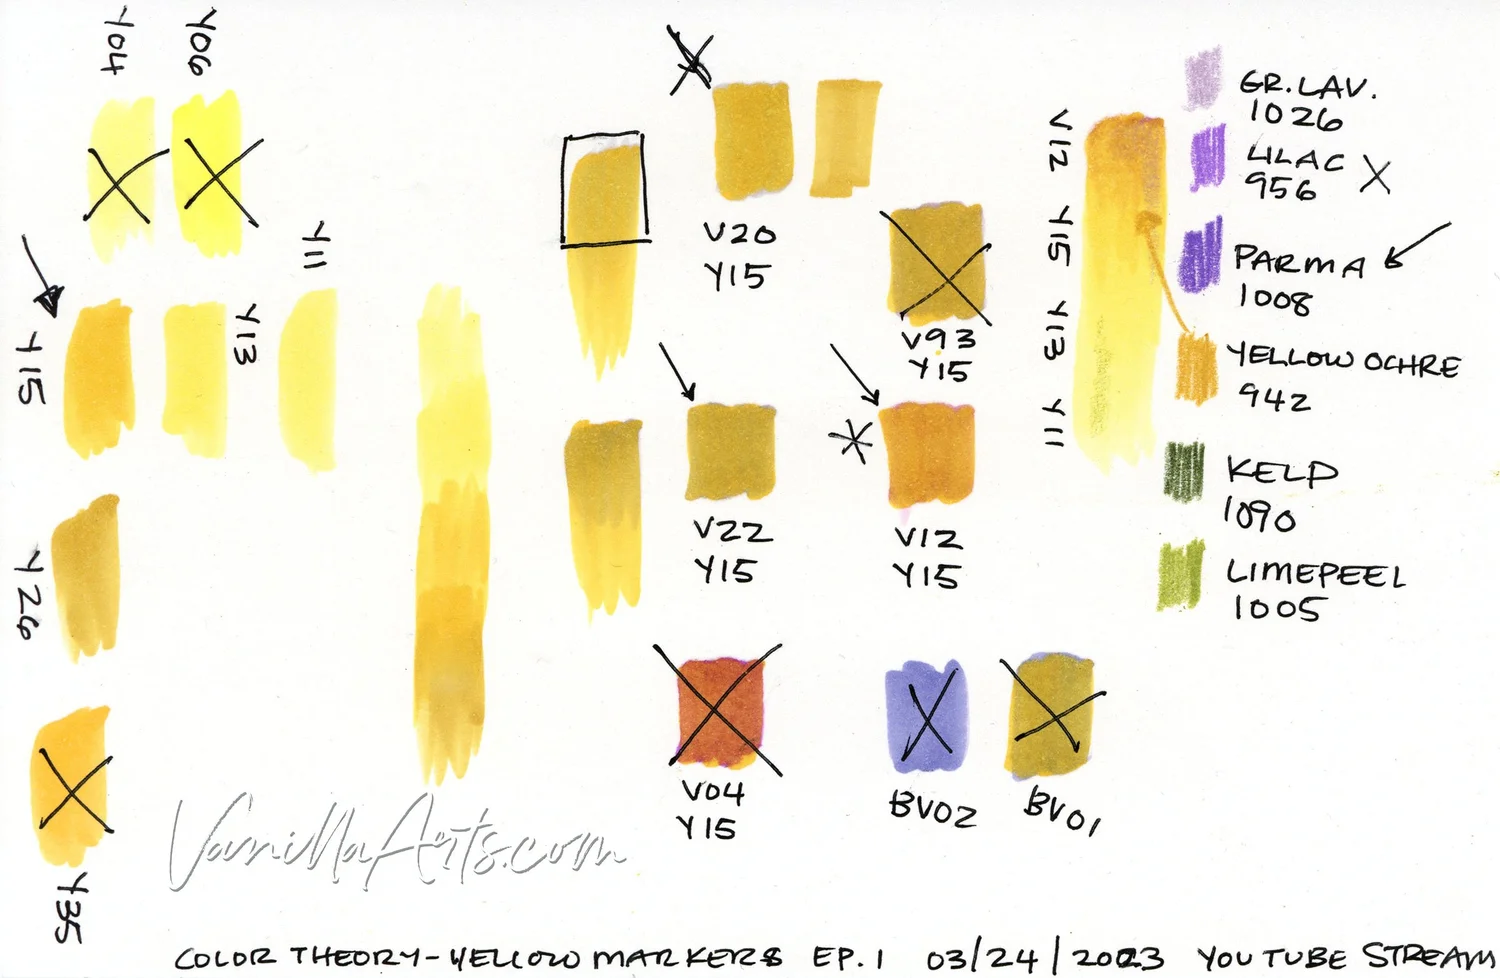 Y04
Y06
Y11
Y15
Y13
Y26
Y35
V20
Y15
V93
Y15
V22
Y15
V12
Y15
V04
Y15
BV02
BV01
V12
Y15
Y13
Y11
GR. LAV.
1026
LILAC
956
PARMA
1008
YELLOW OCHRE
942
KELP
1090
LIMEPEEL
1005
VanillaArts.com
COLOR THEORY - YELLOW MARKERS EP. 1 03/24/2023 YOUTUBE STREAM